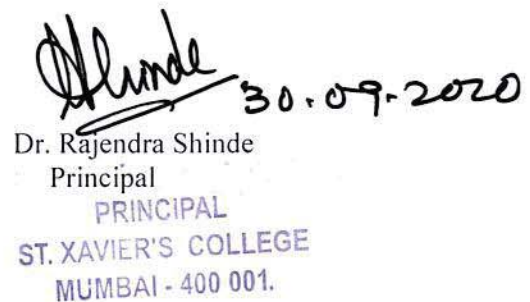 Shinde
30.09.2020
Dr. Rajendra Shinde
Principal
PRINCIPAL
ST. XAVIER'S COLLEGE
MUMBAI - 400 001.